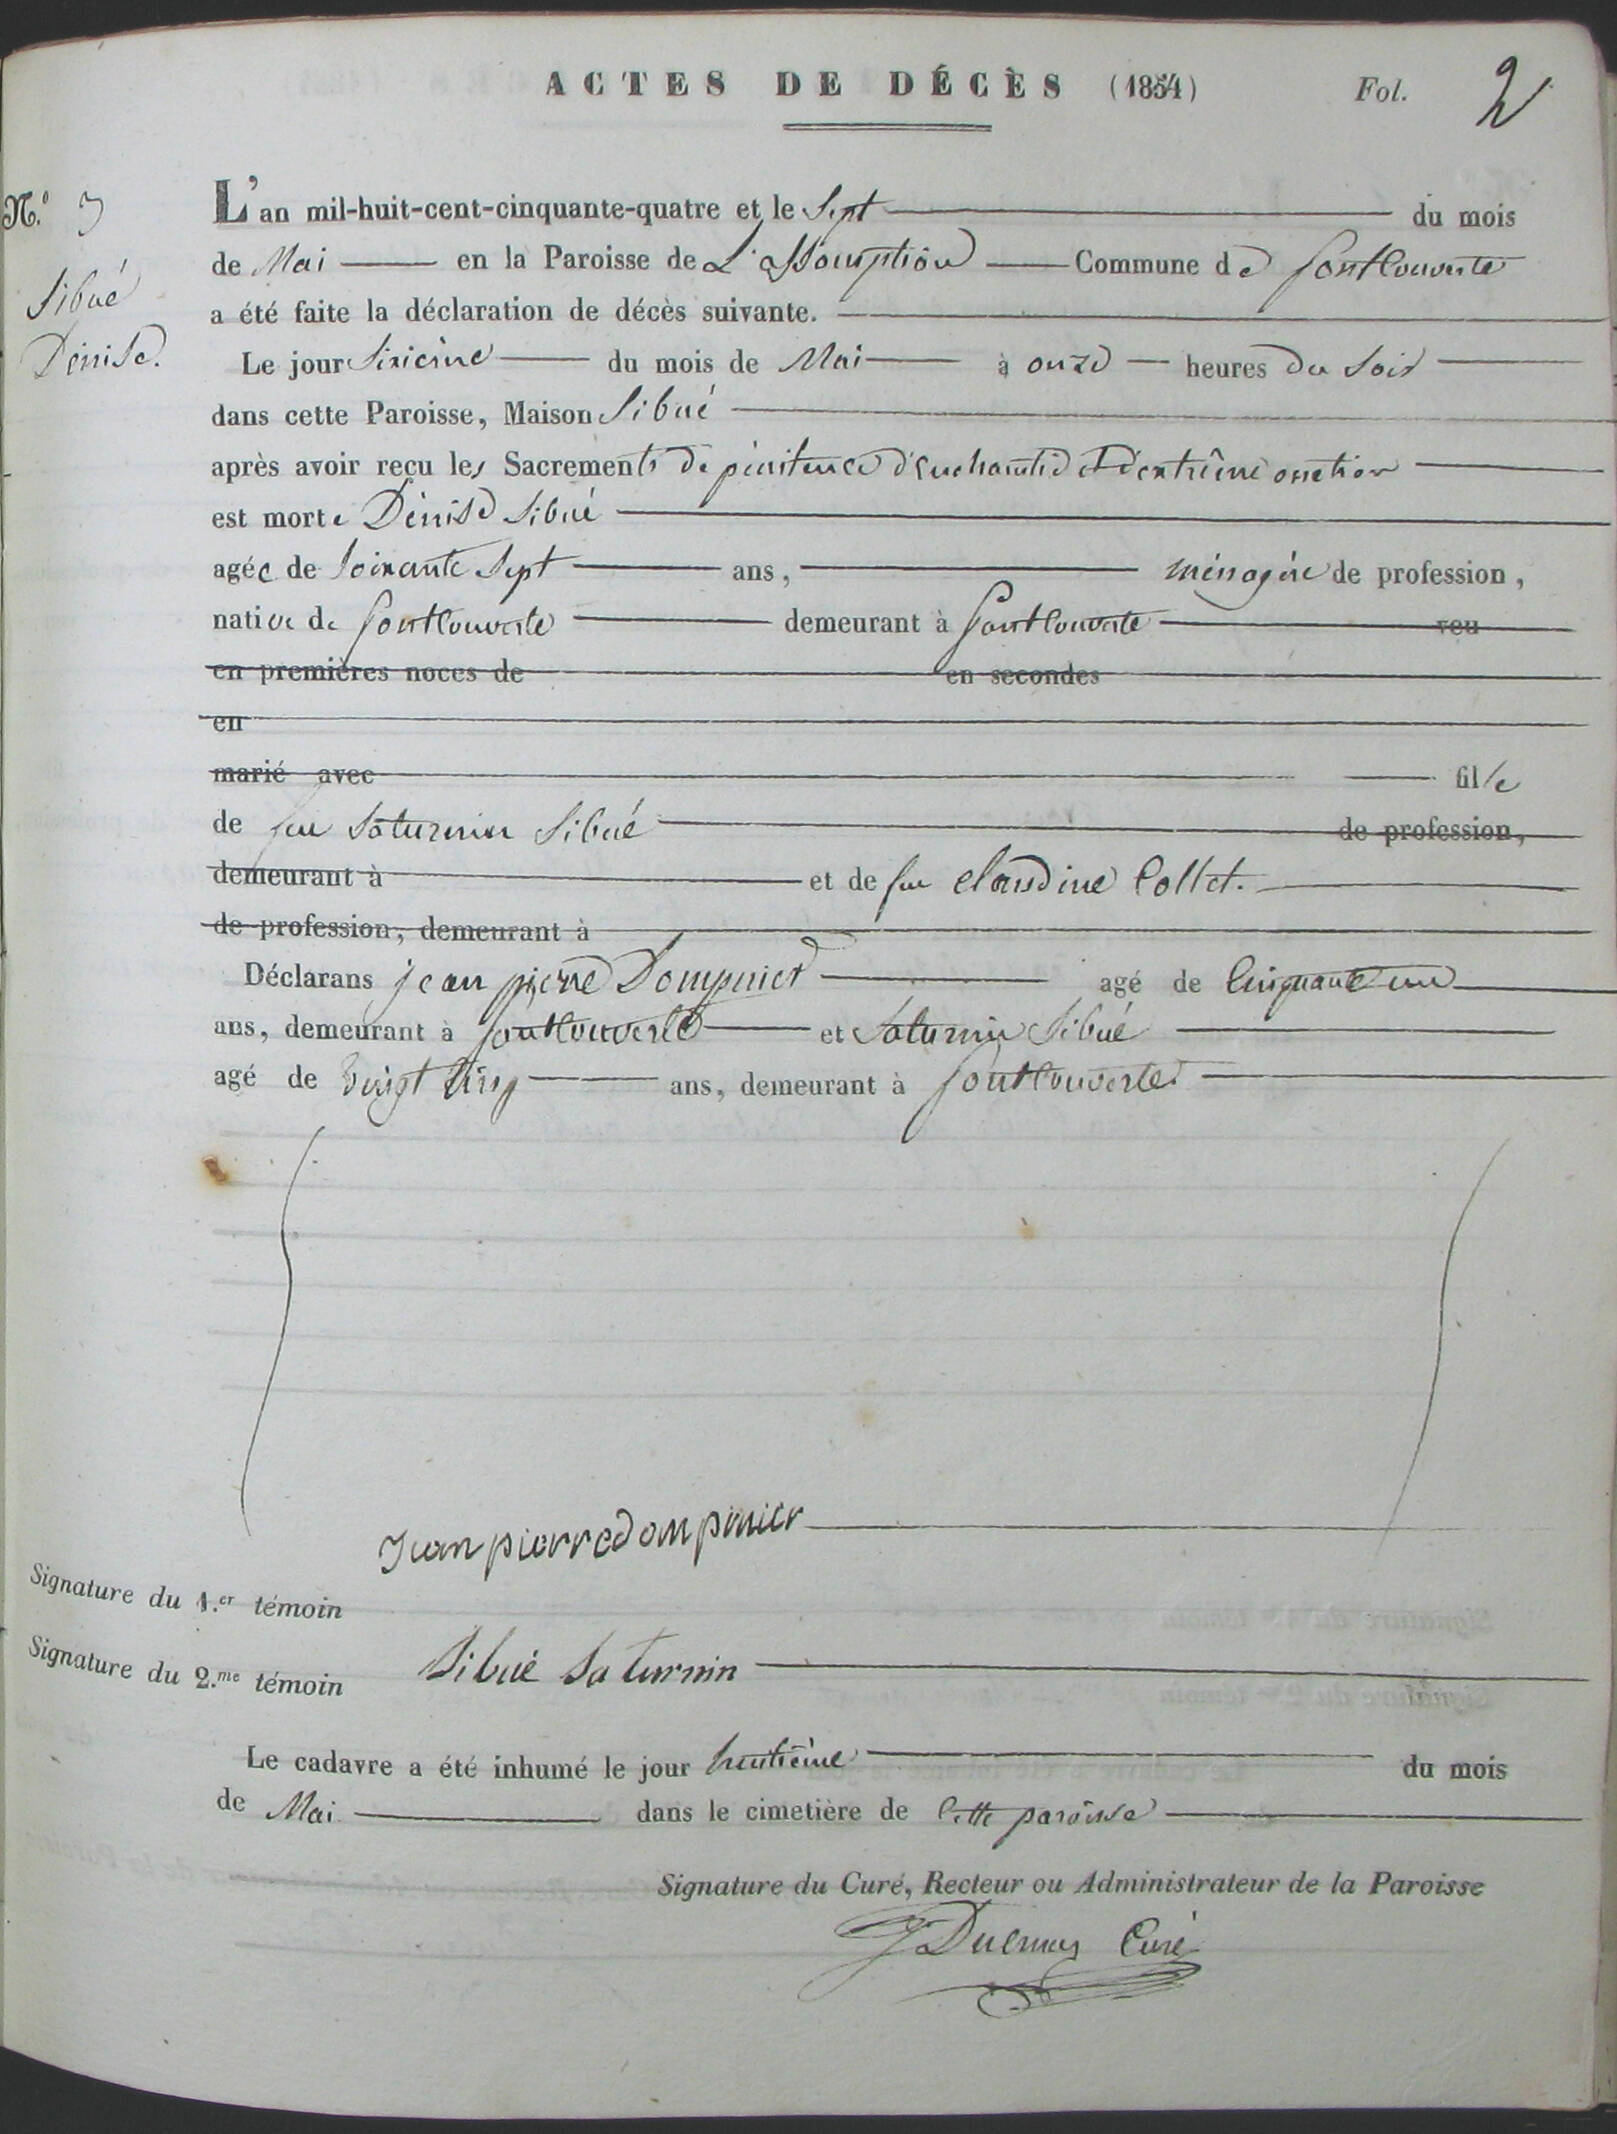 ACTES DE DÉCÈS (1854) Fol. 2
N.º 3
Sibué
Dénise.
L'an mil-huit-cent-cinquante-quatre et le Sept du mois
de Mai en la Paroisse de L'assomption Commune de fontcouverte
a été faite la déclaration de décès suivante.
Le jour Sixième du mois de Mai à onze heures du Soir
dans cette Paroisse, Maison Sibué
après avoir reçu les Sacrements de pénitence d'euchaustie et d'extrême onction
est morte Dénise Sibué
agée de Soixante Sept ans, ménagère de profession,
native de fontcouverte demeurant à fontcouverte veu
en premières noces de en secondes
en
marié avec fille
de feu Saturnin Sibué de profession,
demeurant à et de feu claudine Collet.
de profession, demeurant à
Déclarans jean pierre Dompnier agé de Cinquante un
ans, demeurant à fontcouverte et Saturnin Sibué
agé de vingt cinq ans, demeurant à fontcouverte
Jean pierre dompnier
Signature du 1.er témoin
Signature du 2.me témoin Sibué Saturnin
Le cadavre a été inhumé le jour huitième du mois
de Mai dans le cimetière de Cette paroisse
Signature du Curé, Recteur ou Administrateur de la Paroisse
Curé